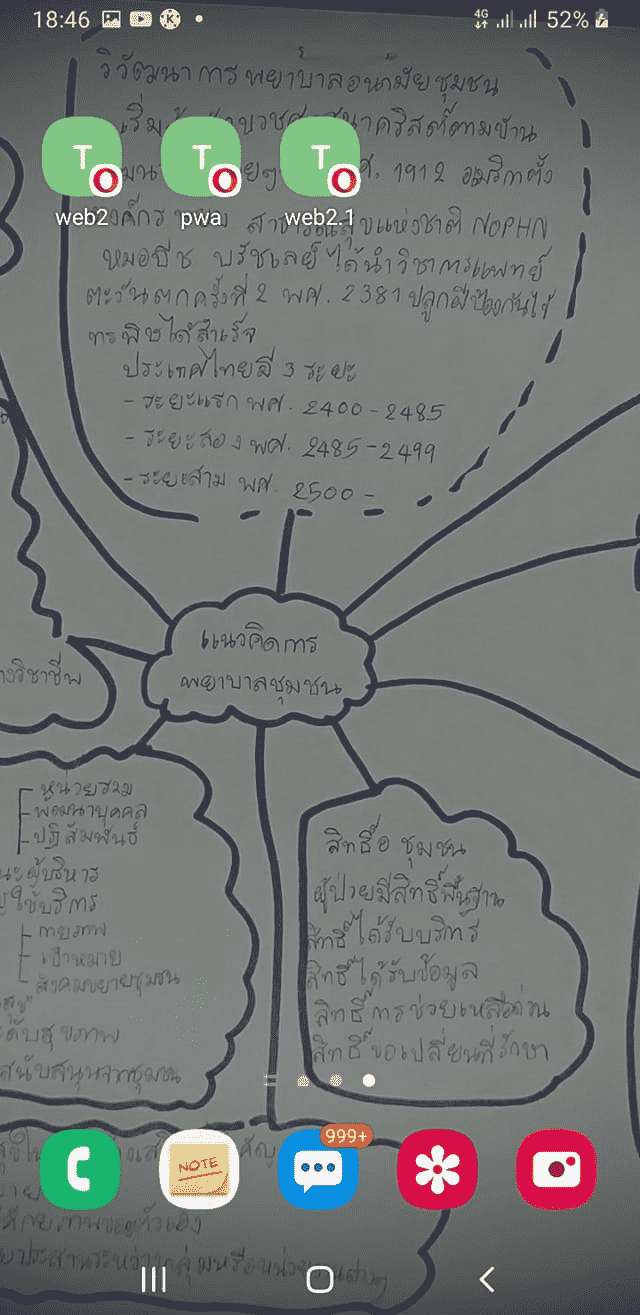 18:46
4G
52%
วิวัฒนาการพยาบาลอนามัยชุมชน
ศาสนาคริสต์ตามบ้าน
1912 อเมริกาตั้ง
องค์กร สาธารณสุขแห่งชาติ NOPHN
web2
pwa
web2.1
หมอบีช บรัชเลย์ ได้นำวิชาการแพทย์
ตะวันตกครั้งที่ 2 พศ. 2381 ปลูกฝีป้องกันไข้
ทรพิษได้สำเร็จ
ประเทศไทยมี 3 ระยะ
- ระยะแรก พศ. 2400 - 2485
- ระยะสอง พศ. 2485 - 2499
- ระยะสาม พศ. 2500 -
แนวคิดการ
พยาบาลชุมชน
วิชาชีพ
หน่วยรวม
พัฒนาบุคคล
ปฏิสัมพันธ์
ผู้บริหาร
ใช้บริการ
กายภาพ
เป้าหมาย
สังคมขยายชุมชน
สุขภาพ
สนับสนุนจากชุมชน
สิทธิ์อ ชุมชน
ผู้ป่วยมีสิทธิ์พื้นฐาน
สิทธิ์ได้รับบริการ
สิทธิ์ได้รับข้อมูล
สิทธิ์การช่วยเหลือด่วน
สิทธิ์ขอเปลี่ยนที่รักษา
999+
NOTE
ของตัวเอง
ประสานระหว่างกลุ่มหรือหน่วยงานต่างๆ